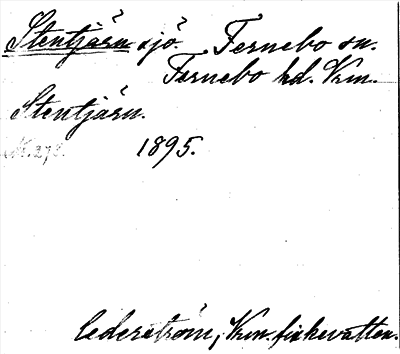 Stentjärn sjö. Fernebo sn.
Fernebo hd. Vrm.
Stentjärn.
1895.
Cederström, Vrm. fiskevatten.